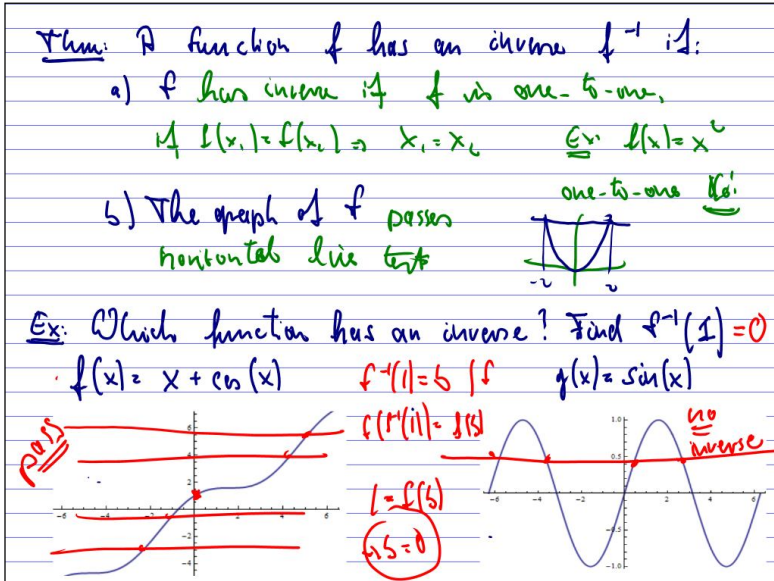 Thm: A function f has an inverse f⁻¹ if:
a) f has inverse if f is one-to-one,
if f(x₁) = f(x₂) ⇒ x₁ = x₂ Ex: f(x) = x²
one-to-one No!
b) The graph of f passes
horizontal line test
-2 2
Ex: Which function has an inverse? Find f⁻¹(1) = 0
f(x) = x + cos(x) f⁻¹(1) = b | f g(x) = sin(x)
pass
f(f⁻¹(1)) = f(b)
no
inverse
1 = f(b)
→ b = 0
-6 -4 -2 2 4 6
4
2
-2
-4
1.0
0.5
-0.5
-1.0
-6 -4 -2 2 4 6